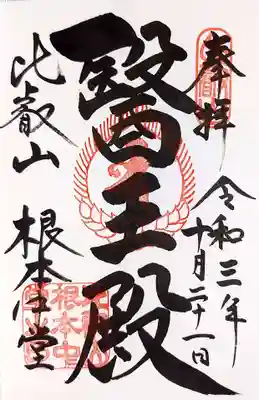 奉拝
令和三年
十月二十一日
醫王殿
比叡山
根本中堂